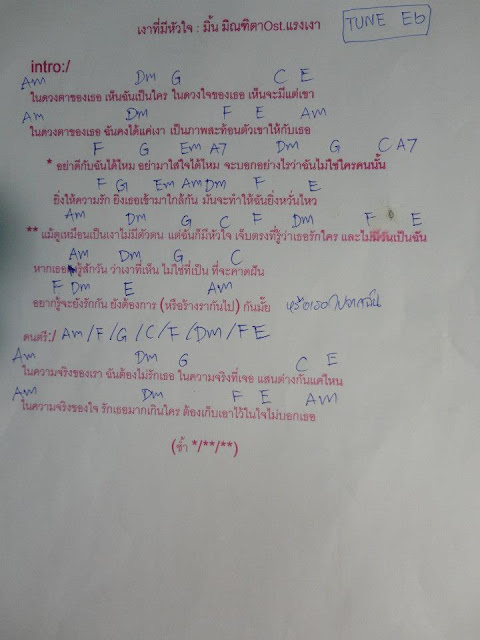 TUNE Eb
เงาที่มีหัวใจ : มิ้น มิณฑิตาOst.แรงเงา
intro:/
Am Dm G C E
ในดวงตาของเธอ เห็นฉันเป็นใคร ในดวงใจของเธอ เห็นจะมีแต่เขา
Am Dm F E Am
ในดวงตาของเธอ ฉันคงได้แค่เงา เป็นภาพสะท้อนตัวเขาให้กับเธอ
F G Em A7 Dm G C A7
* อย่าดีกับฉันได้ไหม อย่ามาใส่ใจได้ไหม จะบอกอย่างไรว่าฉันไม่ใช่ใครคนนั้น
F G Em Am Dm F E
ยิ่งให้ความรัก ยิ่งเธอเข้ามาใกล้กัน มันจะทำให้ฉันยิ่งหวั่นไหว
Am Dm G C F Dm F E
** แม้ดูเหมือนเป็นเงาไม่มีตัวตน แต่ฉันก็มีหัวใจ เจ็บตรงที่รู้ว่าเธอรักใคร และไม่มีวันเป็นฉัน
Am Dm G C
หากเธอ รู้สักวัน ว่าเงาที่เห็น ไม่ใช่ที่เป็น ที่จะคาดฝัน
F Dm E Am
อยากรู้จะยังรักกัน ยังต้องการ (หรือร้างรากันไป) กันมั้ย
ดนตรี:/ Am/F/G/C/F/Dm/F E
Am Dm G C E
ในความจริงของเรา ฉันต้องไม่รักเธอ ในความจริงที่เจอ แสนต่างกันแค่ไหน
Am Dm F E Am
ในความจริงของใจ รักเธอมากเกินใคร ต้องเก็บเอาไว้ในใจไม่บอกเธอ
(ซ้ำ */**/**)